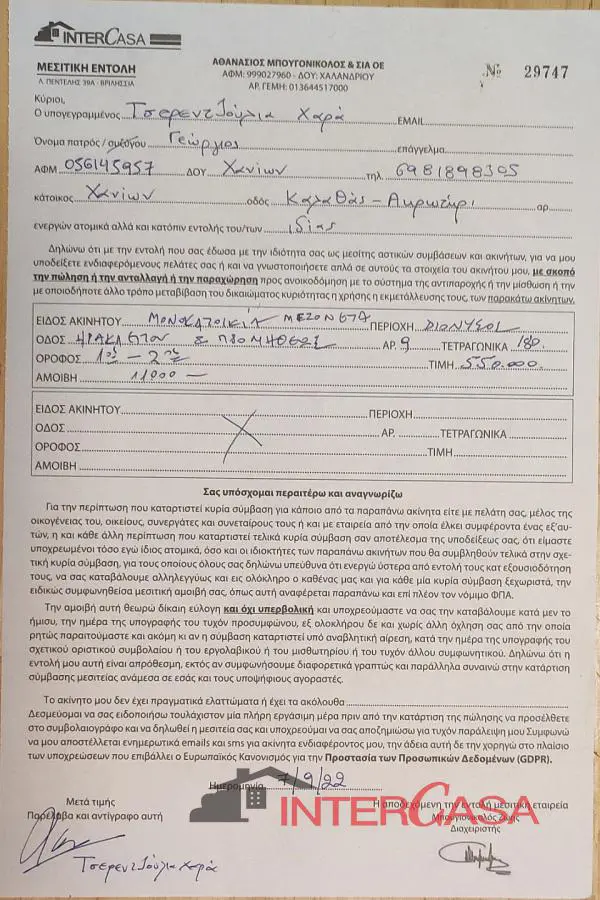 INTERCASA
ΜΕΣΙΤΙΚΗ ΕΝΤΟΛΗ
Λ. ΠΕΝΤΕΛΗΣ 39Α - ΒΡΙΛΗΣΣΙΑ
ΑΘΑΝΑΣΙΟΣ ΜΠΟΥΓΟΝΙΚΟΛΟΣ & ΣΙΑ ΟΕ
ΑΦΜ: 999027960 - ΔΟΥ: ΧΑΛΑΝΔΡΙΟΥ
ΑΡ. ΓΕΜΗ: 013644517000
№ 29747
Κύριοι,
Ο υπογεγραμμένος Τσερεντζούλια Χαρά EMAIL
Όνομα πατρός / συζύγου Γεώργιος επάγγελμα
ΑΦΜ 056145957 ΔΟΥ Χανίων τηλ. 6981898305
κάτοικος Χανίων οδός Καλαθάς - Ακρωτήρι αρ.
ενεργών ατομικά αλλά και κατόπιν εντολής του/των ιδίας
Δηλώνω ότι με την εντολή που σας έδωσα με την ιδιότητα σας ως μεσίτης αστικών συμβάσεων και ακινήτων, για να μου
υποδείξετε ενδιαφερόμενους πελάτες σας ή και να γνωστοποιήσετε απλά σε αυτούς τα στοιχεία του ακινήτου μου, με σκοπό
την πώληση ή την ανταλλαγή ή την παραχώρηση προς ανοικοδόμηση με το σύστημα της αντιπαροχής ή την μίσθωση ή την
με οποιοδήποτε άλλο τρόπο μεταβίβαση του δικαιώματος κυριότητας η χρήσης η εκμετάλλευσης τους, των παρακάτω ακινήτων.
ΕΙΔΟΣ ΑΚΙΝΗΤΟΥ ΜΟΝΟΚΑΤΟΙΚΙΑ ΜΕΖΟΝΕΤΑ ΠΕΡΙΟΧΗ ΔΙΟΝΥΣΟΣ
ΟΔΟΣ ΗΡΑΚΛΕΙΤΟΥ & ΠΡΟΜΗΘΕΩΣ ΑΡ. 9 ΤΕΤΡΑΓΩΝΙΚΑ 180
ΟΡΟΦΟΣ 1ος - 2ος ΤΙΜΗ 550.000
ΑΜΟΙΒΗ 11000 -
ΕΙΔΟΣ ΑΚΙΝΗΤΟΥ ΠΕΡΙΟΧΗ
ΟΔΟΣ ΑΡ. ΤΕΤΡΑΓΩΝΙΚΑ
ΟΡΟΦΟΣ ΤΙΜΗ
ΑΜΟΙΒΗ
Σας υπόσχομαι περαιτέρω και αναγνωρίζω
Για την περίπτωση που καταρτιστεί κυρία σύμβαση για κάποιο από τα παραπάνω ακίνητα είτε με πελάτη σας, μέλος της
οικογένειας του, οικείους, συνεργάτες και συνεταίρους τους ή και με εταιρεία από την οποία έλκει συμφέροντα ένας εξ'αυ-
τών, η και κάθε άλλη περίπτωση που καταρτιστεί τελικά κυρία σύμβαση σαν αποτέλεσμα της υποδείξεως σας, ότι είμαστε
υποχρεωμένοι τόσο εγώ ίδιος ατομικά, όσο και οι ιδιοκτήτες των παραπάνω ακινήτων που θα συμβληθούν τελικά στην σχε-
τική κυρία σύμβαση, για τους οποίους όλους σας δηλώνω υπεύθυνα ότι ενεργώ ύστερα από εντολή τους κατ εξουσιοδότηση
τους, να σας καταβάλουμε αλληλεγγύως και εις ολόκληρο ο καθένας μας και για κάθε μία κυρία σύμβαση ξεχωριστά, την
ειδικώς συμφωνηθείσα μεσιτική αμοιβή σας, όπως αυτή αναφέρεται παραπάνω και επί πλέον τον νόμιμο ΦΠΑ.
Την αμοιβή αυτή θεωρώ δίκαιη εύλογη και όχι υπερβολική και υποχρεούμαστε να σας την καταβάλουμε κατά μεν το
ήμισυ, την ημέρα της υπογραφής του τυχόν προσυμφώνου, εξ ολοκλήρου δε και χωρίς άλλη όχληση σας από την οποία
ρητώς παραιτούμαστε και ακόμη κι αν η σύμβαση καταρτιστεί υπό αναβλητική αίρεση, κατά την ημέρα της υπογραφής του
σχετικού οριστικού συμβολαίου ή του εργολαβικού ή του μισθωτηρίου ή του τυχόν άλλου συμφωνητικού. Δηλώνω ότι η
εντολή μου αυτή είναι απρόθεσμη, εκτός αν συμφωνήσουμε διαφορετικά γραπτώς και παράλληλα συναινώ στην κατάρτιση
σύμβασης μεσιτείας ανάμεσα σε εσάς και τους υποψήφιους αγοραστές.
Το ακίνητο μου δεν έχει πραγματικά ελαττώματα ή έχει τα ακόλουθα
Δεσμεύομαι να σας ειδοποιήσω τουλάχιστον μία πλήρη εργάσιμη μέρα πριν από την κατάρτιση της πώλησης να προσέλθετε
στο συμβολαιογράφο και να δηλωθεί η μεσιτεία σας και υποχρεούμαι να σας αποζημιώσω για τυχόν παράλειψη μου Συμφωνώ
να μου αποστέλλεται ενημερωτικά emails και sms για ακίνητα ενδιαφέροντος μου, την άδεια αυτή δε την χορηγώ στο πλαίσιο
των υποχρεώσεων που επιβάλλει ο Ευρωπαϊκός Κανονισμός για την Προστασία των Προσωπικών Δεδομένων (GDPR).
Ημερομηνία 7/9/22
INTERCASA
Μετά τιμής
Παρέλαβα και αντίγραφο αυτή
Τσερεντζούλια Χαρά
Η αποδεχόμενη την εντολή μεσιτική εταιρεία
Μπουγονικολός Ζώης
Διαχειριστής